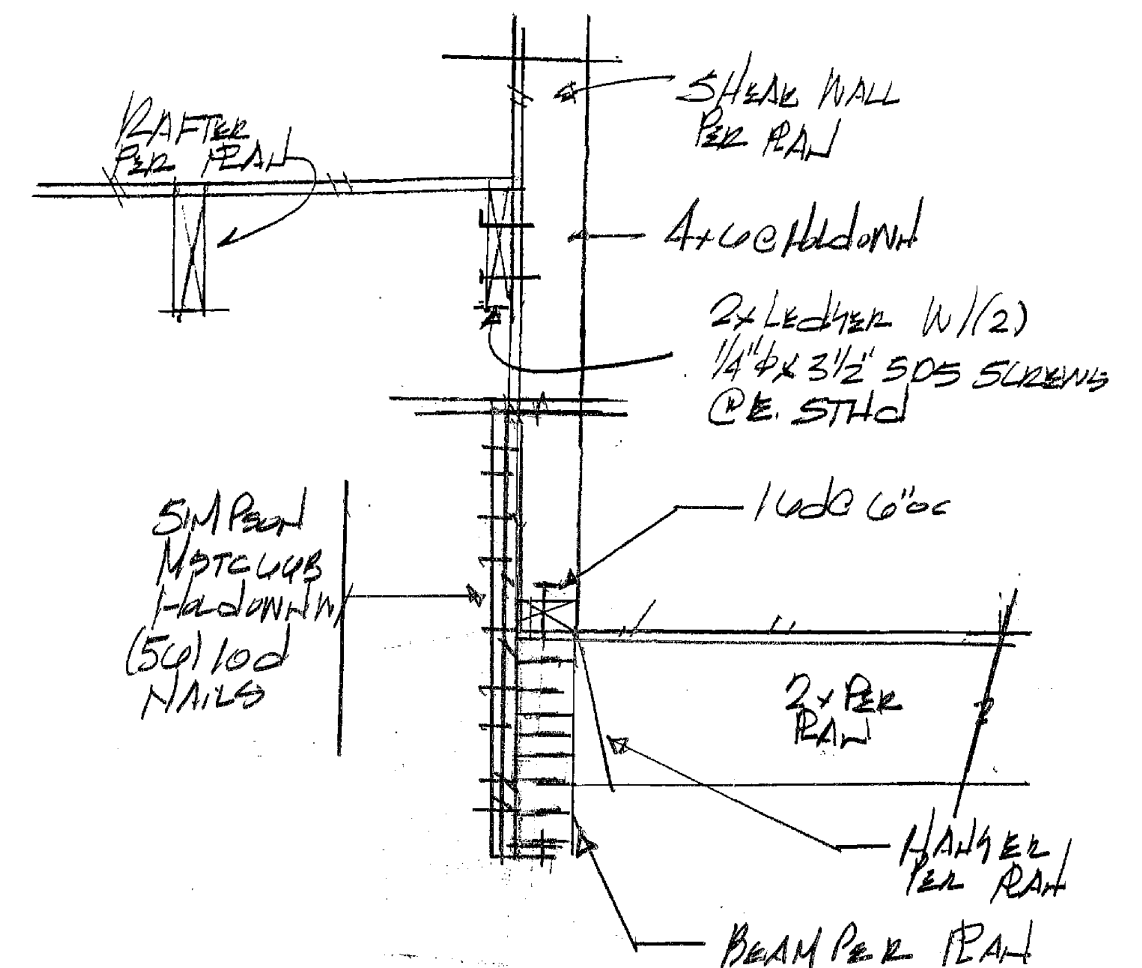 SHEAR WALL
PER PLAN
RAFTER
PER PLAN
4x6 @ HOLDOWN
2x LEDGER W/(2)
1/4"φ x 3 1/2" SDS SCREWS
@ E. STUD
16d @ 6"oc
SIMPSON
MSTC66B
HOLDOWN W/
(56) 10d
NAILS
2x PER
PLAN
HANGER
PER PLAN
BEAM PER PLAN